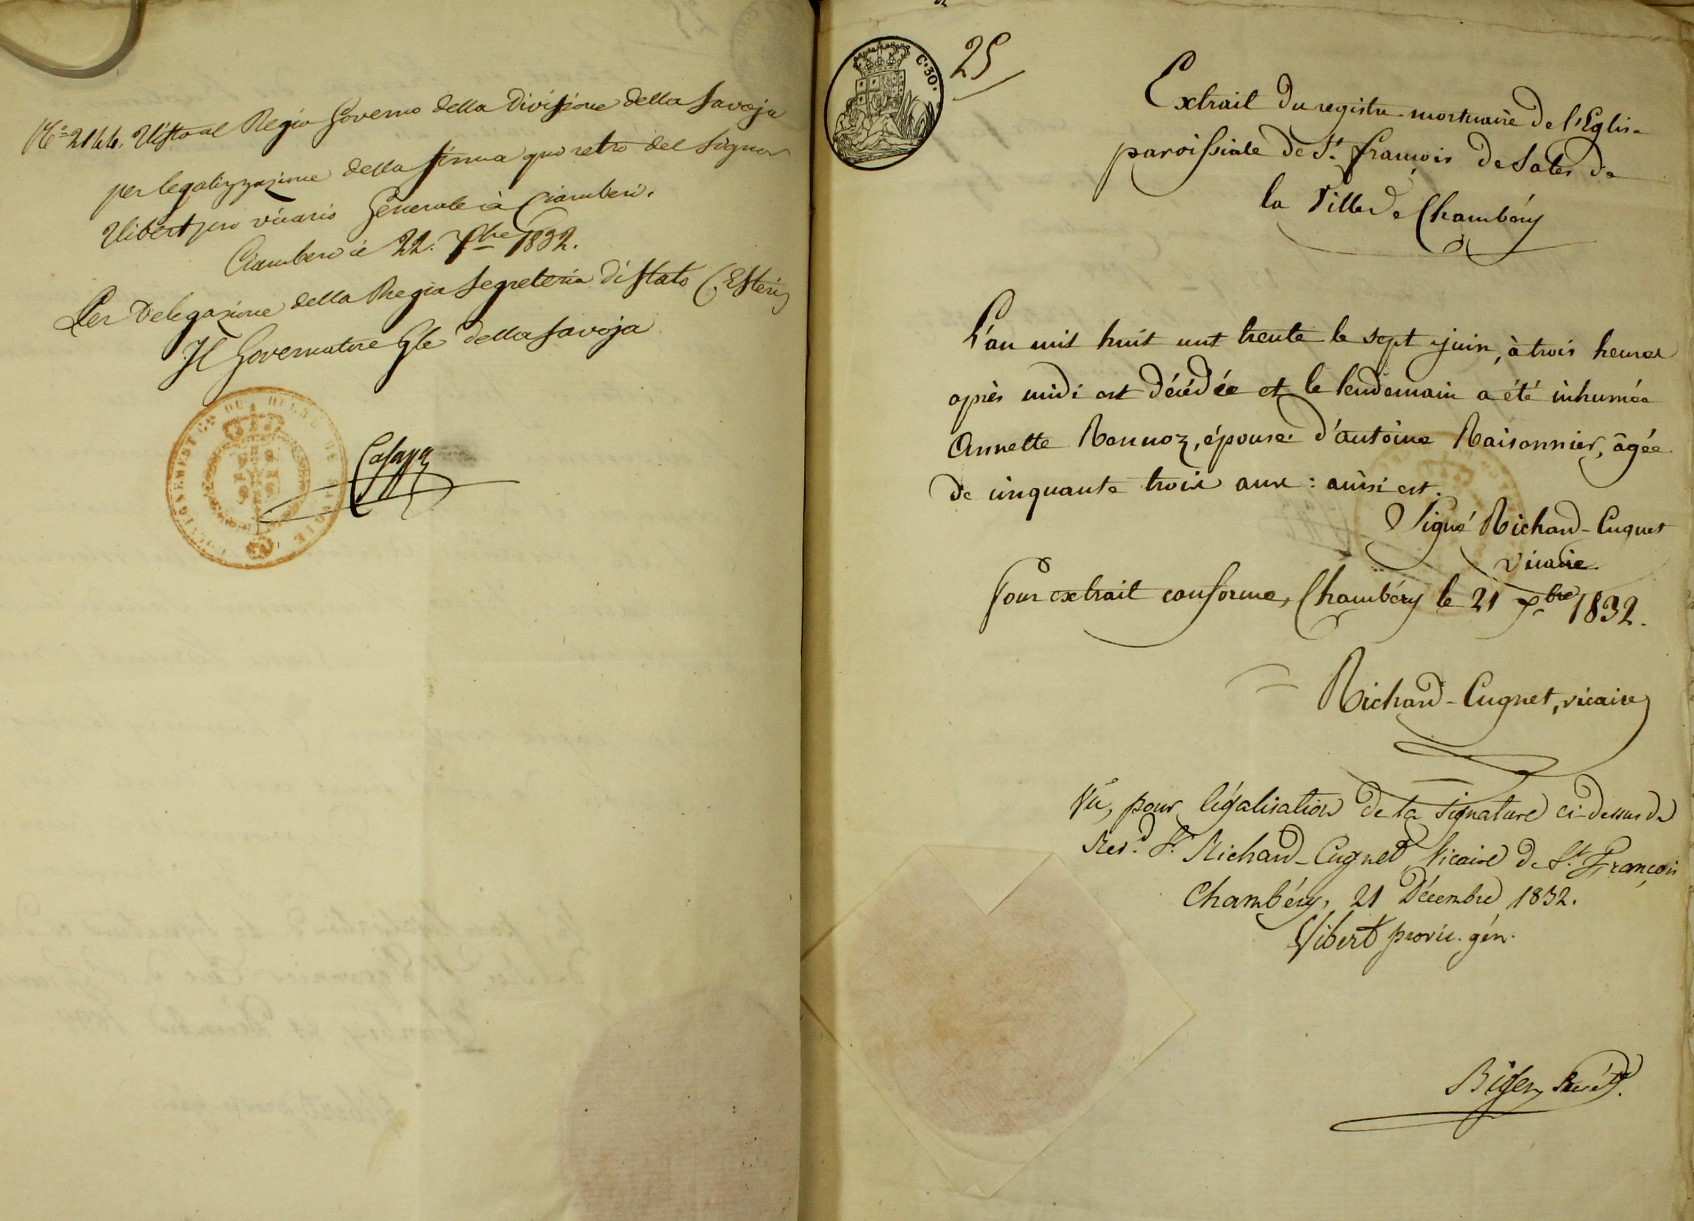 N.° 2144. Visto al Regio Governo della Divisione della Savoja
per legalizzazione della firma quo retro del Signor
Vibert pro vicario Generale à Ciamberi.
Ciamberi è 22. Xbre 1832.
Per Delegazione della Regia Segreteria di Stato (Esteri)
Il Governatore Gle della Savoja
25
C. 30.
Extrait du registre mortuaire de l'Eglise
paroissiale de St. françois de Sales de
la Ville de Chambéry
L'an mil huit cent trente le sept juin, à trois heures
après midi est décédée et le lendemain a été inhumée
Annette Bonnoz, épouse d'antoine Raisonnier, âgée
de cinquante trois ans : ainsi est.
Signé Richard-Cugnet
vicaire
Pour extrait conforme, Chambéry le 21 Xbre 1832.
Richard-Cugnet, vicaire
Vu, pour légalisation de la signature ci-dessus de
Rev.d Sr. Richard-Cugnet Vicaire de St. François
Chambéry, 21 Décembre 1832.
Vibert provic. gén.